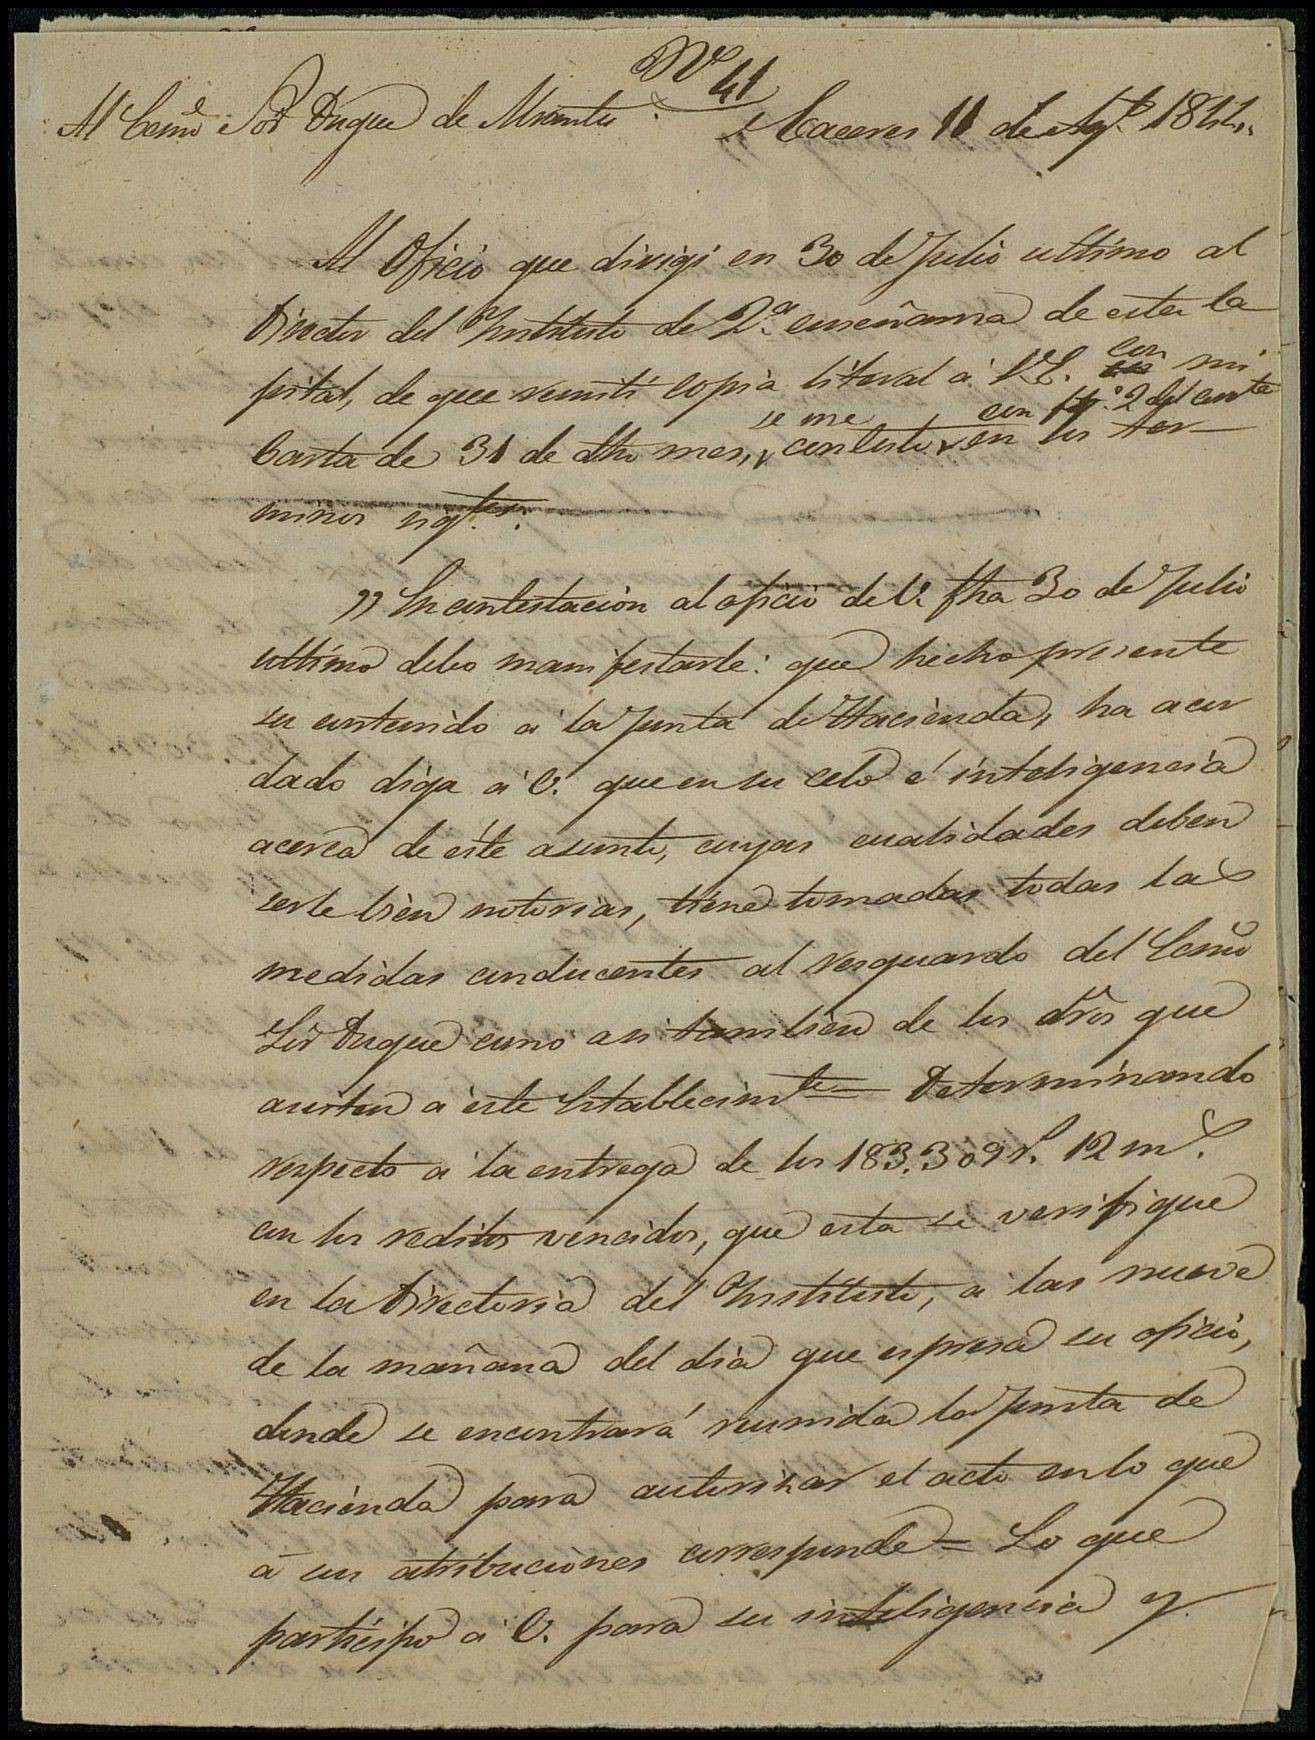 Nº 41
Al Exmô Sôr Duque de Abrantes.
Caceres 11 de Agtº 1844.
Al Oficio que dirigi en 30 de Julio ultimo al
Director del Instituto de 2.ª enseñanza de esta Ca
pital, de que remití copia literal á V.E. con mi
Carta de 31 de dho mes, se me contestó con fha. 2 del corrte en los ter-
minos sigtes.
"En contestacion al oficio de V. fha 30 de Julio
ultimo debo manifestarle: que hecho presente
su contenido á la Junta de Hacienda, ha acor
dado diga á V. que en su celo é inteligencia
acerca de éste asunto, cuyas cualidades deben
serle bien notorias, tiene tomadas todas las
medidas conducentes al resguardo del Exmô
Sôr Duque como asi tambien de los drôs que
asisten á éste Establecimto = Determinando
respecto á la entrega de los 183.309 r.s 12 m.s
con los reditos vencidos, que esta se verifique
en la Directoria del Instituto, á las nueve
de la mañana del dia que espresa su oficio,
donde se encontrará reunida la Junta de
Hacienda para autorizar el acto en lo que
á sus atribuciones corresponde = Lo que
participo á V. para su inteligencia y